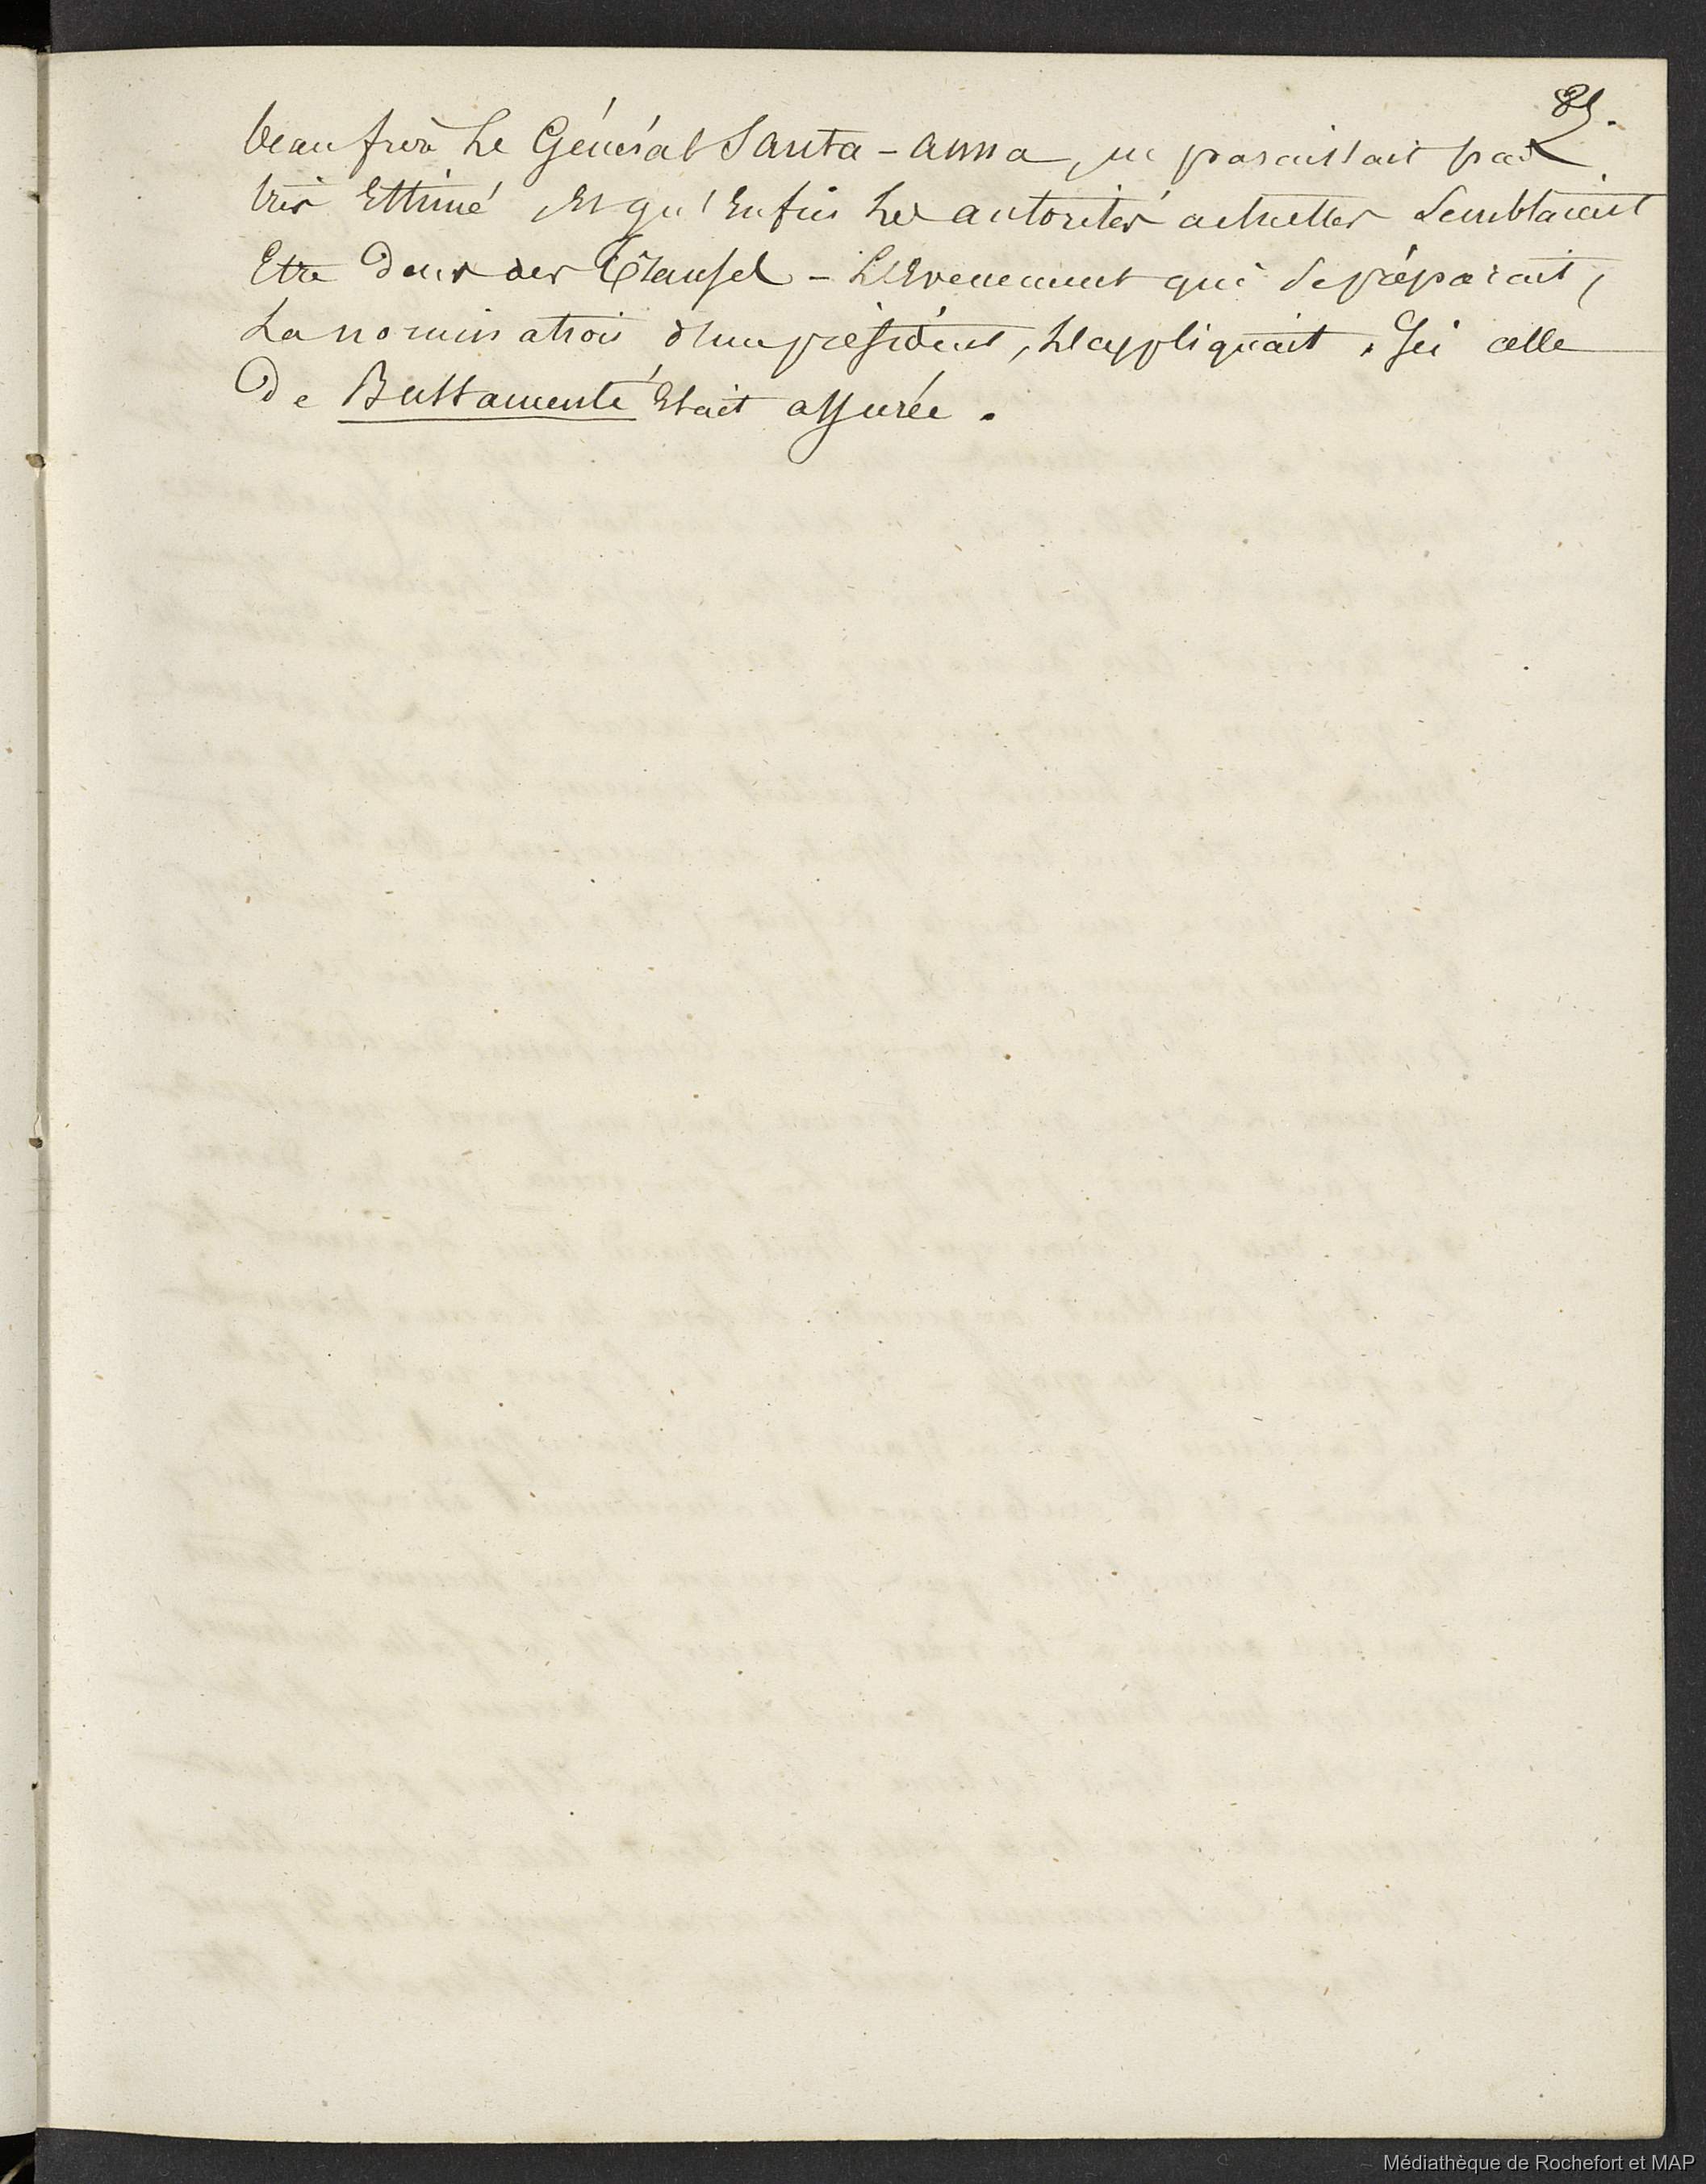 85.
beau frère Le Général Santa-anna, ne paraissait pas
très Estimé, Et qu'Enfin Les autorités actuelles Semblaient
Etre dans des transes - L'Evenement qui se préparait,
La nomination d'un président, L'expliquait. Ici celle
De Bustamente Etait assurée.
Médiathèque de Rochefort et MAP